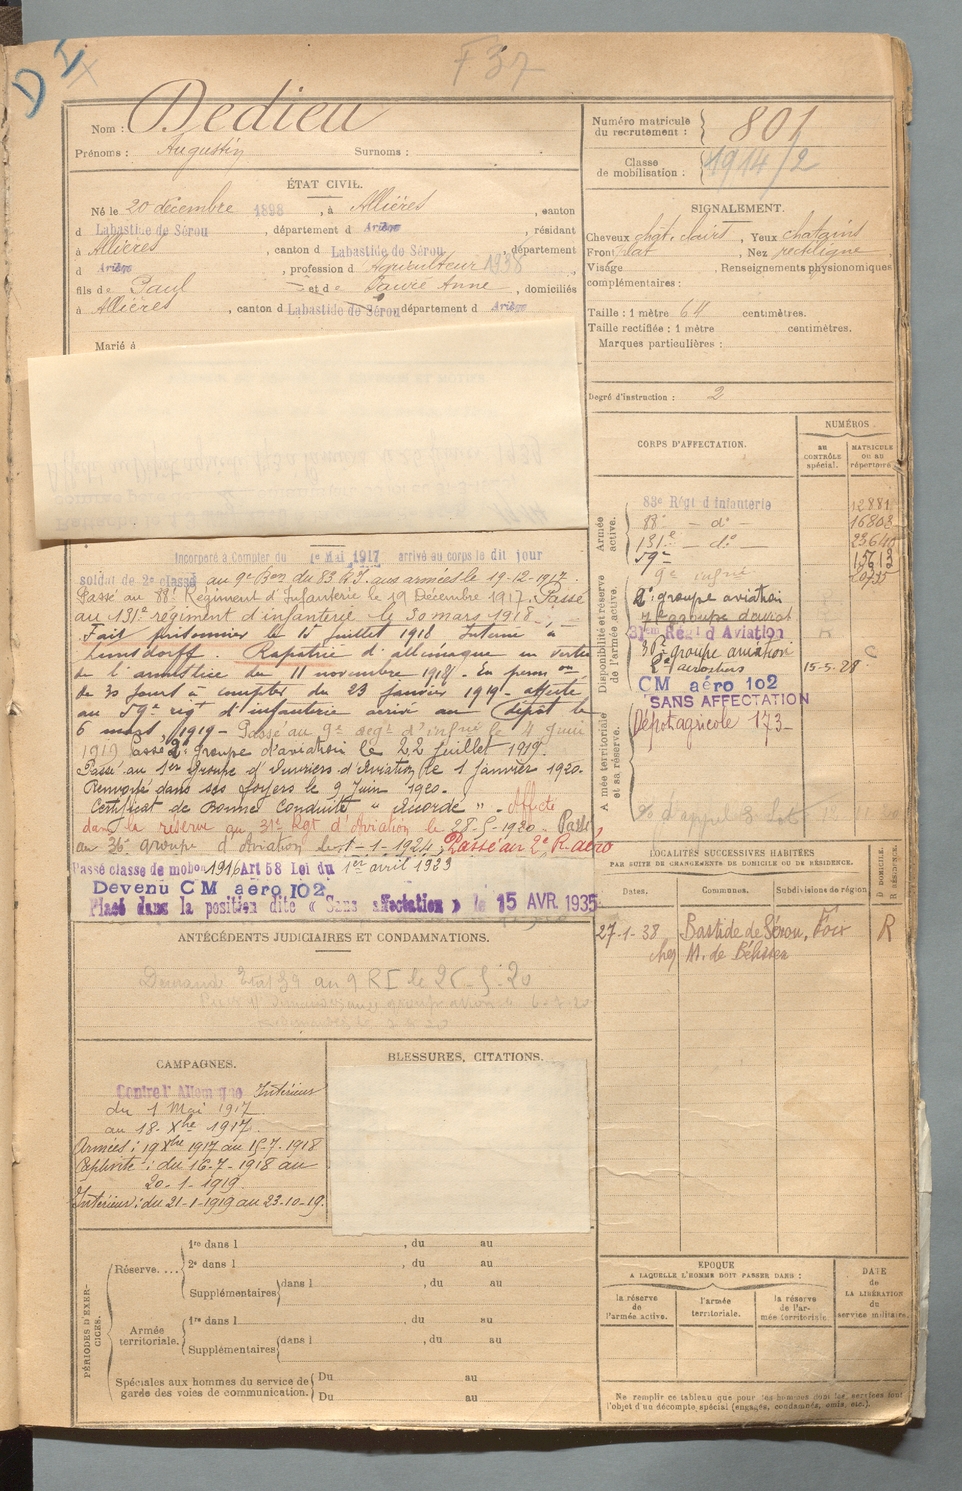 D
F 37
Nom : Dedieu
Prénoms : Augustin Surnoms :
Numéro matricule du recrutement : 801
Classe de mobilisation : 1914/2
ÉTAT CIVIL.
Né le 20 décembre 1898, à Allières, canton
d Labastide de Sérou, département d Ariège, résidant
à Allières, canton d Labastide de Sérou, département
d Ariège, profession d Agriculteur 1938
fils de Paul et de Faure Anne, domiciliés
à Allières, canton d Labastide de Sérou, département d Ariège
Marié à
SIGNALEMENT.
Cheveux chât. clairs, Yeux chatains
Front plat, Nez rectiligne
Visage, Renseignements physionomiques
complémentaires :
Taille : 1 mètre 64 centimètres.
Taille rectifiée : 1 mètre centimètres.
Marques particulières :
Degré d'instruction : 2
Incorporé à Compter du 1er Mai 1917 arrivé au corps le dit jour
soldat de 2e classe au 9e Bon du 83 RI. aux armées le 19-12-1917.
Passé au 88e Régiment d'Infanterie le 19 Décembre 1917. Passé
au 131e régiment d'infanterie le 30 mars 1918.
Fait prisonnier le 15 Juillet 1918 Interné à
Lamsdorff. Rapatrié d'allemagne en vertu
de l'armistice du 11 novembre 1918. En perm on
de 30 jours à compter du 23 janvier 1919. affecté
au 59e regt d'infanterie arrivé au dépôt le
6 mars 1919 - Passé au 9e regt d'infrie le 4 Juin
1919 Passé 2e groupe d'aviation le 22 juillet 1919.
Passé au 1er Groupe d'Ouvriers d'Aviation le 1 Janvier 1920.
Renvoyé dans ses foyers le 9 Juin 1920.
Certificat de Bonne Conduite " accordé ". Affecté
dans la réserve au 31e Rgt d'Aviation le 28-5-1920. Passé
au 36e groupe d'Aviation le 1-1-1924, Passé au 2e R. aéro
Passé classe de mobon 1916 Art 58 Loi du 1er avril 1923
Devenu CM aéro 102
Placé dans la position dite « Sans affectation » le 15 AVR. 1935
CORPS D'AFFECTATION.
NUMÉROS
au CONTRÔLE spécial.
MATRICULE OU AU répertoire
Armée active.
83e Régt d'infanterie 12881
88e — do — 16803
131e — do — 23640
59e 15613
9e infrie 20735
Disponibilité et réserve de l'armée active.
2e groupe aviation
31em Régt d'Aviation
36e groupe aviation
2e aerostiers 15-5-28
CM aéro 102
SANS AFFECTATION
Armée territoriale et sa réserve.
Dépôt agricole 173-
LOCALITÉS SUCCESSIVES HABITÉES
PAR SUITE DE CHANGEMENTS DE DOMICILE OU DE RÉSIDENCE.
Dates. Communes. Subdivisions de région D DOMICILE. R RÉSIDENCE.
27-1-38 Bastide de Sérou, Foix R
chez M. de Bélissen
ANTÉCÉDENTS JUDICIAIRES ET CONDAMNATIONS.
CAMPAGNES.
Contre l'Allemagne Intérieur
du 1 Mai 1917
au 18. Xbre 1917.
Armées : 19 Xbre 1917 au 15-7-1918
Captivité : du 16-7-1918 au
20-1-1919.
Intérieur : du 21-1-1919 au 23-10-19.
BLESSURES, CITATIONS.
PÉRIODES D'EXERCICES.
Réserve.... 1re dans l , du au
2e dans l , du au
Supplémentaires dans l , du au
Armée territoriale. 1re dans l , du au
Supplémentaires dans l , du au
Spéciales aux hommes du service de garde des voies de communication. Du au
Du au
ÉPOQUE
A LAQUELLE L'HOMME DOIT PASSER DANS :
la réserve de l'armée active. l'armée territoriale. la réserve de l'armée territoriale
DATE de LA LIBÉRATION du service militaire.
Ne remplir ce tableau que pour les hommes dont les services font
l'objet d'un décompte spécial (engagés, condamnés, omis, etc.).